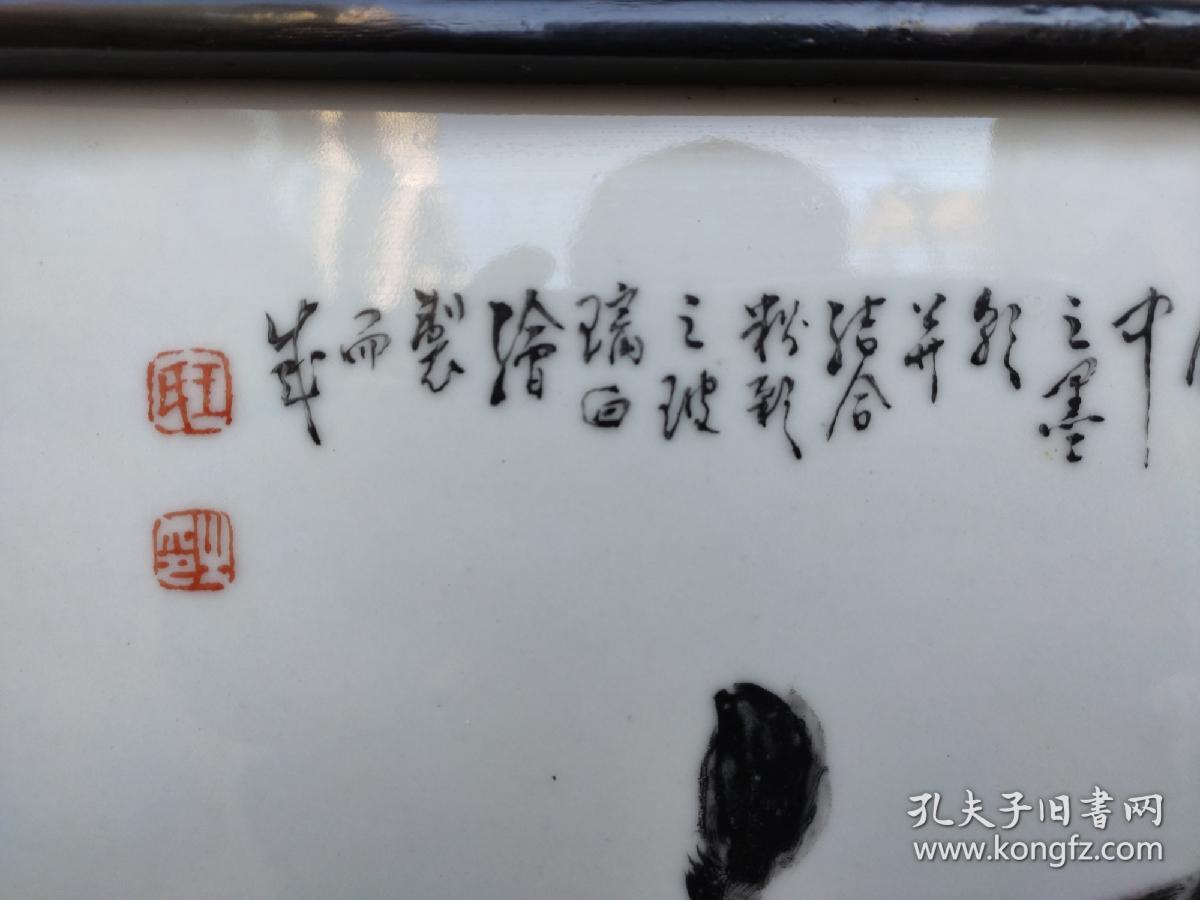 中
之墨
彩
并
結合
粉彩
之玻
璃白
繪
製
而
成
孔夫子旧书网
www.kongfz.com